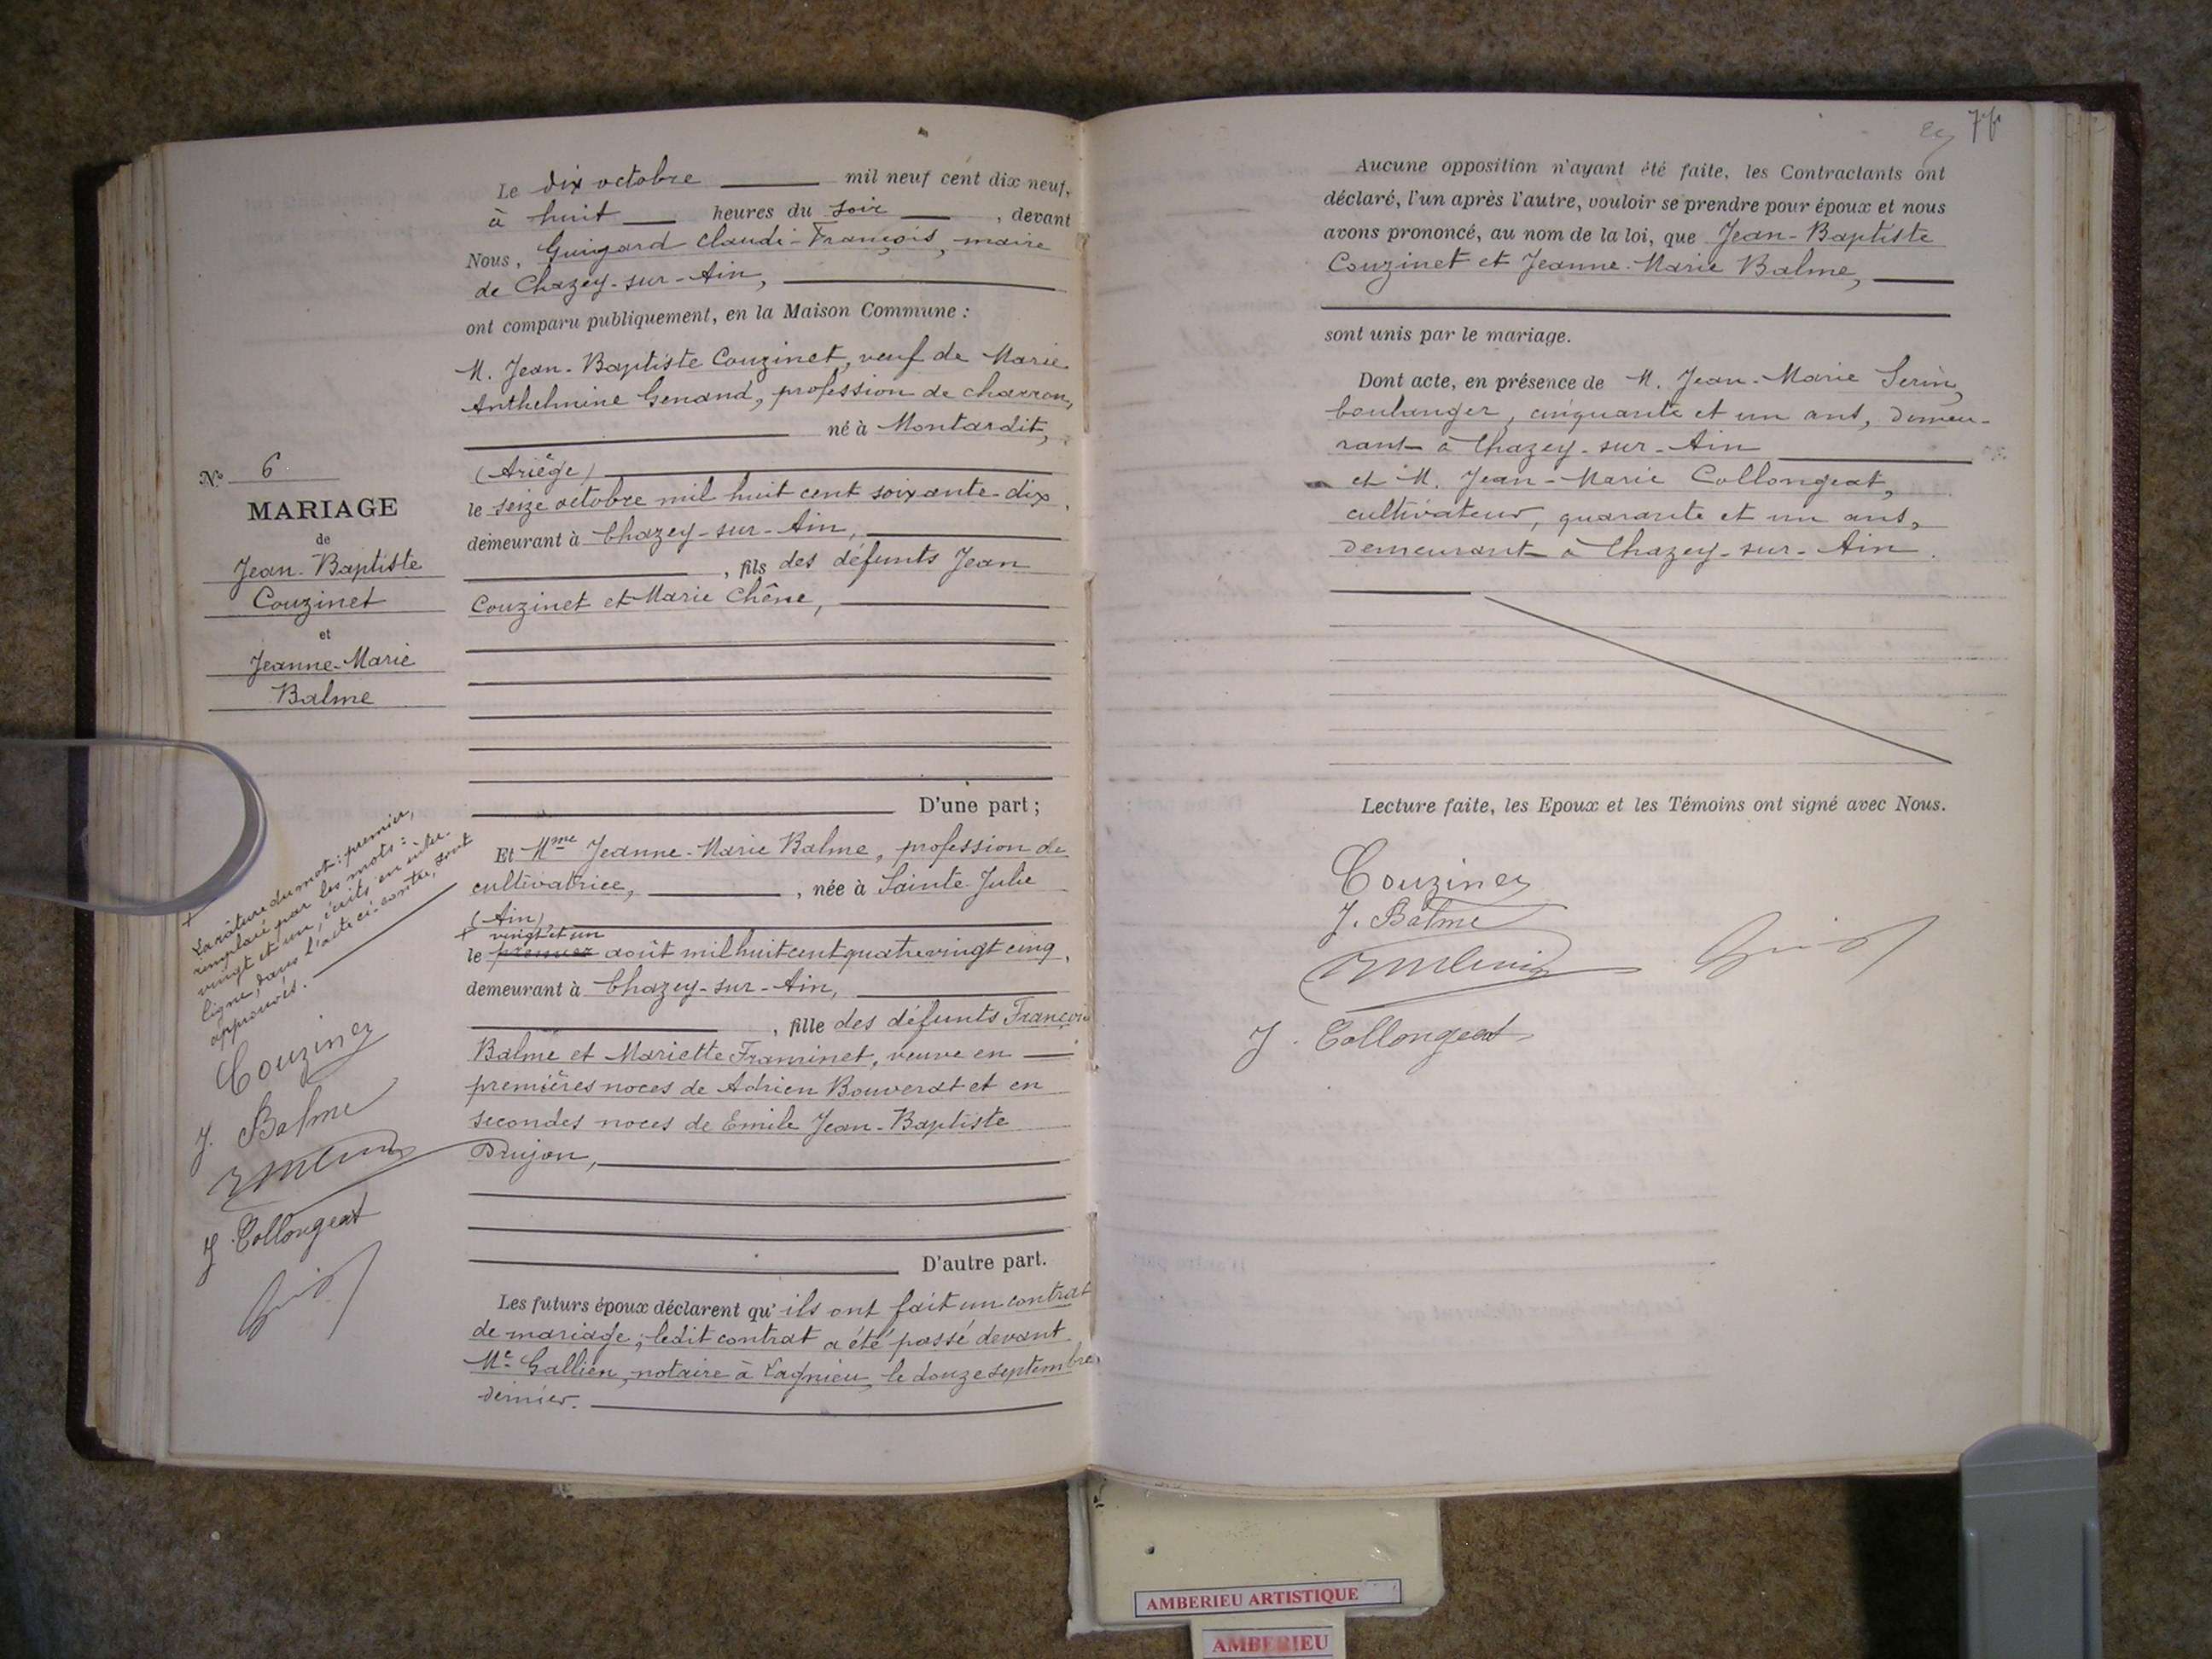 Le dix octobre mil neuf cent dix neuf,
à huit heures du soir , devant
Nous, Guigard Claude-François, maire
de Chazey-sur-Ain,
ont comparu publiquement, en la Maison Commune :
M. Jean-Baptiste Couzinet, veuf de Marie
Anthelmine Genand, profession de charron,
né à Montardit,
(Ariège)
le seize octobre mil huit cent soixante-dix,
demeurant à Chazey-sur-Ain,
, fils des défunts Jean
Couzinet et Marie Chêne,
D'une part ;
Et Mme Jeanne-Marie Balme, profession de
cultivatrice, , née à Sainte-Julie
(Ain)
+ vingt et un
le premier août mil huit cent quatre vingt cinq,
demeurant à Chazey-sur-Ain,
, fille des défunts François
Balme et Mariette Framinet, veuve en
premières noces de Adrien Bouverat et en
secondes noces de Emile Jean-Baptiste
Drujon,
D'autre part.
Les futurs époux déclarent qu'ils ont fait un contrat
de mariage ; ledit contrat a été passé devant
Me Gallien, notaire à Lagnieu, le douze septembre
dernier.
No 6
MARIAGE
de
Jean-Baptiste
Couzinet
et
Jeanne-Marie
Balme
+
La rature du mot : premier,
remplacé par les mots :
vingt et un, écrits en inter-
ligne, dans l'acte ci-contre, sont
approuvés.
Couzinet
J. Balme
J. Collongeat
74
Aucune opposition n'ayant été faite, les Contractants ont
déclaré, l'un après l'autre, vouloir se prendre pour époux et nous
avons prononcé, au nom de la loi, que Jean-Baptiste
Couzinet et Jeanne-Marie Balme,
sont unis par le mariage.
Dont acte, en présence de M. Jean-Marie Serin,
boulanger, cinquante et un ans, demeu-
rant à Chazey-sur-Ain
et M. Jean-Marie Collongeat,
cultivateur, quarante et un ans,
demeurant à Chazey-sur-Ain.
Lecture faite, les Epoux et les Témoins ont signé avec Nous.
Couzinet
J. Balme
J. Collongeat
AMBERIEU ARTISTIQUE
AMBERIEU